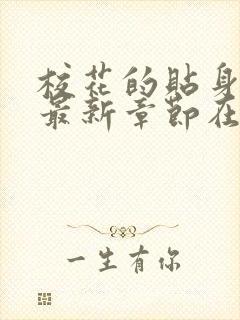 校花的贴身
最新章节在
一生有你